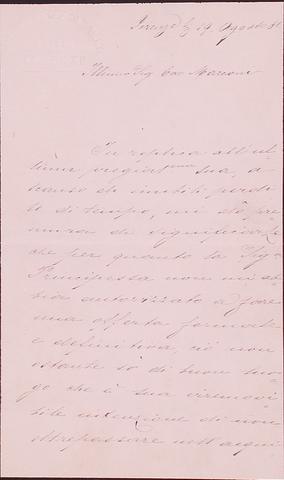 Firenze li 19 Agosto 81
Illmo Sig Cav Marconi
In replica all'ul
tima pregiatma sua, a
scanso di inutili perdi
te di tempo, mi dò pre
mura di significarle
che per quanto la Sigra
Principessa non mi ab
bia autorizzato a fare
una offerta formale
e definitiva, ciò non
ostante so di buon luo
go che è sua irremovi
bile intenzione di non
oltrepassare nell'acqui